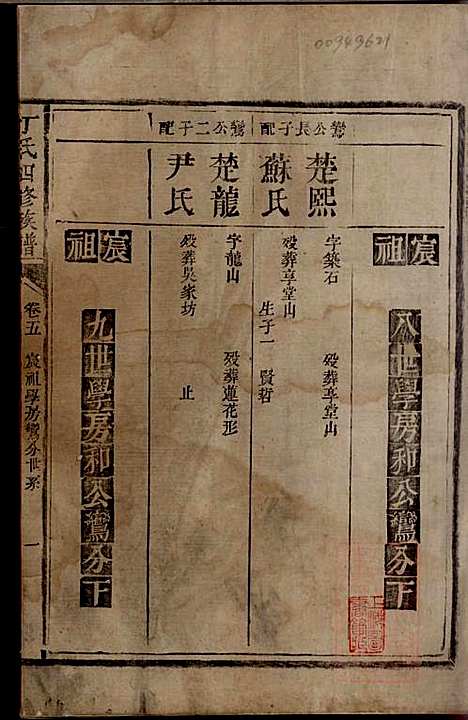 00949621
宸祖
八世學房和公鸞分下
鸞公長子配
楚熙
字築石 歿葬享堂山
蘇氏
歿葬享堂山 生子一 賢哲
鸞公二子配
楚龍
字龍山 歿葬蓮花形
尹氏
歿葬吳家坊 止
宸祖
九世學房和公鸞分下
丁氏四修族譜
卷五 宸祖學房鸞分世系 一